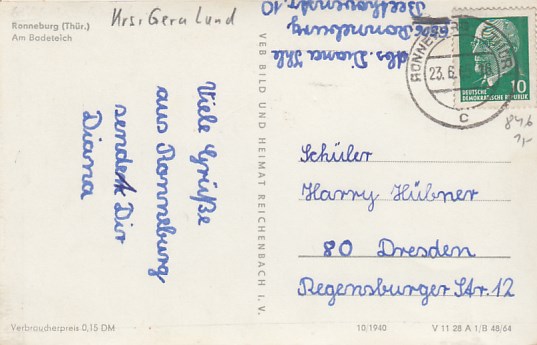 Ronneburg (Thür.)
Am Badeteich
Krs: Gera Land
Viele Grüße
aus Ronneburg
sendet Dir
Diana
VEB BILD UND HEIMAT REICHENBACH I. V.
Abs. Diana Ihle
6506 Ronneburg
Beethovenstr. 10
RONNEBURG (THÜR)
23.6.
c
10
DEUTSCHE
DEMOKRATISCHE REPUBLIK
Schüler
Harry Hübner
80 Dresden
Regensburger Str. 12
Verbraucherpreis 0,15 DM
10/1940
V 11 28 A 1/B 48/64